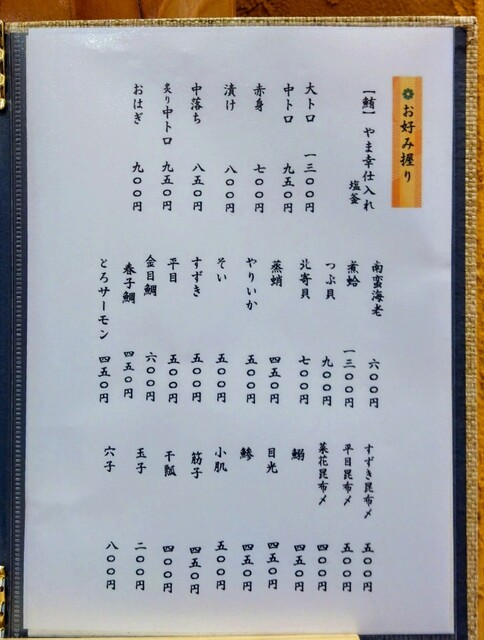 お好み握り
【鮪】やま幸仕入れ
塩釜
大トロ 一三〇〇円
中トロ 九五〇円
赤身 七〇〇円
漬け 八〇〇円
中落ち 八五〇円
炙り中トロ 九五〇円
おはぎ 九〇〇円
南蛮海老 六〇〇円
煮蛤 一三〇〇円
つぶ貝 九〇〇円
北寄貝 七〇〇円
蒸蛸 四五〇円
やりいか 五〇〇円
そい 五〇〇円
すずき 五〇〇円
平目 五〇〇円
金目鯛 六〇〇円
春子鯛 四五〇円
とろサーモン 四五〇円
すずき昆布〆 五〇〇円
平目昆布〆 五〇〇円
菜花昆布〆 四〇〇円
鰯 四五〇円
目光 四五〇円
鯵 四五〇円
小肌 五〇〇円
筋子 四五〇円
干瓢 四〇〇円
玉子 二〇〇円
穴子 八〇〇円